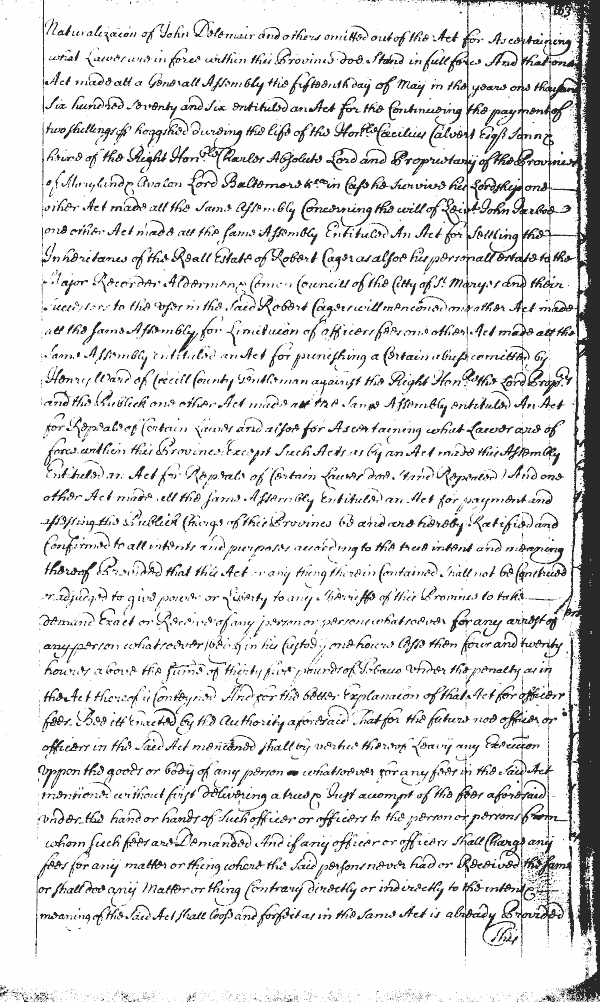 Naturalizacon of John Delemair and others omitted out of the Act for Ascertaining
what Lawes are in force within this Province doe Stand in full force And that one
Act made att a Generall Assembly the fifteenth day of May in the yeare one thousand
Six hundred Seventy and Six entituled an Act for the Continueing the payment of
two shillings hoggshed dureing the life of the Honble Cæcilius Calvert Esqr Sonn &
heire of the Right Honble Charles Absolute Lord and Proprietary of the Provinces
of Maryland & Avalon Lord Baltemore &c in Case he Survive his Lordship one
other Act made att the Same Assembly Concerning the will of Leivt John Jarboe
one other Act made att the Same Assembly Entituled An Act for Settling the
Inheritance of the Reall Estate of Robert Cager as alsoe his personall estate to the
Major Recorder Aldermen & Comon Councill of the Citty of St Maryes and their
Successors to the uses in the Said Robert Cagers will menconed one other Act made
att the Same Assembly for Limitacon of officers fees one other Act made att the
Same Assembly entituled an Act for punishing a Certain abuse comitted by
Henry Ward of Cæcill County Gentleman against the Right Honble the Lord Propry
and the Publick one other Act made att the Same Assembly entituled An Act
for Repeale of Certain Lawes and alsoe for Ascertaining what Lawes are of
force within this Province except Such Acts as by an Act made this Assembly
Entituled an Act for Repeale of Certain Lawes doe Stand Repealed) And one
other Act made att the Same Assembly Entituled an Act for payment and
assessing the Publick Charge of this Province be and are hereby Ratified and
Confirmed to all intents and purposes according to the true intent and meaning
thereof Provided that this Act or any thing therein Contained Shall not be Construed
or adjudged to give power or Liberty to any Sherriffe of this Province to take
demand Exact or Receive of any person or persons whatsoever for any arrest of
any person whatsoever being in his Custody one houre Lesse then four and twenty
houres above the Sume of thirty five pounds of Tobacco under the penalty as in
the Act thereof is Conteyned And for the better Explanacon of that Act for officers
fees. Bee itt Enacted by the Authority aforesaid That for the future noe officer or
officers in the Said Act menconed shall by vertue thereof Leavy any Execucon
uppon the goods or body of any person whatsoever for any fees in the Said Act
mentioned without first delivering a true & Just accompt of the fees aforesaid
under the hand or hands of Such officer or officers to the person or persons from
whom Such fees are Demanded And if any officer or officers Shall Charge any
fees for any matter or thing where the Said persons never had or Received the same
or shall doe any Matter or thing Contrary directly or indirectly to the intent &
meaning of the Said Act shall Loose and forfeit as in the Same Act is already Provided
This